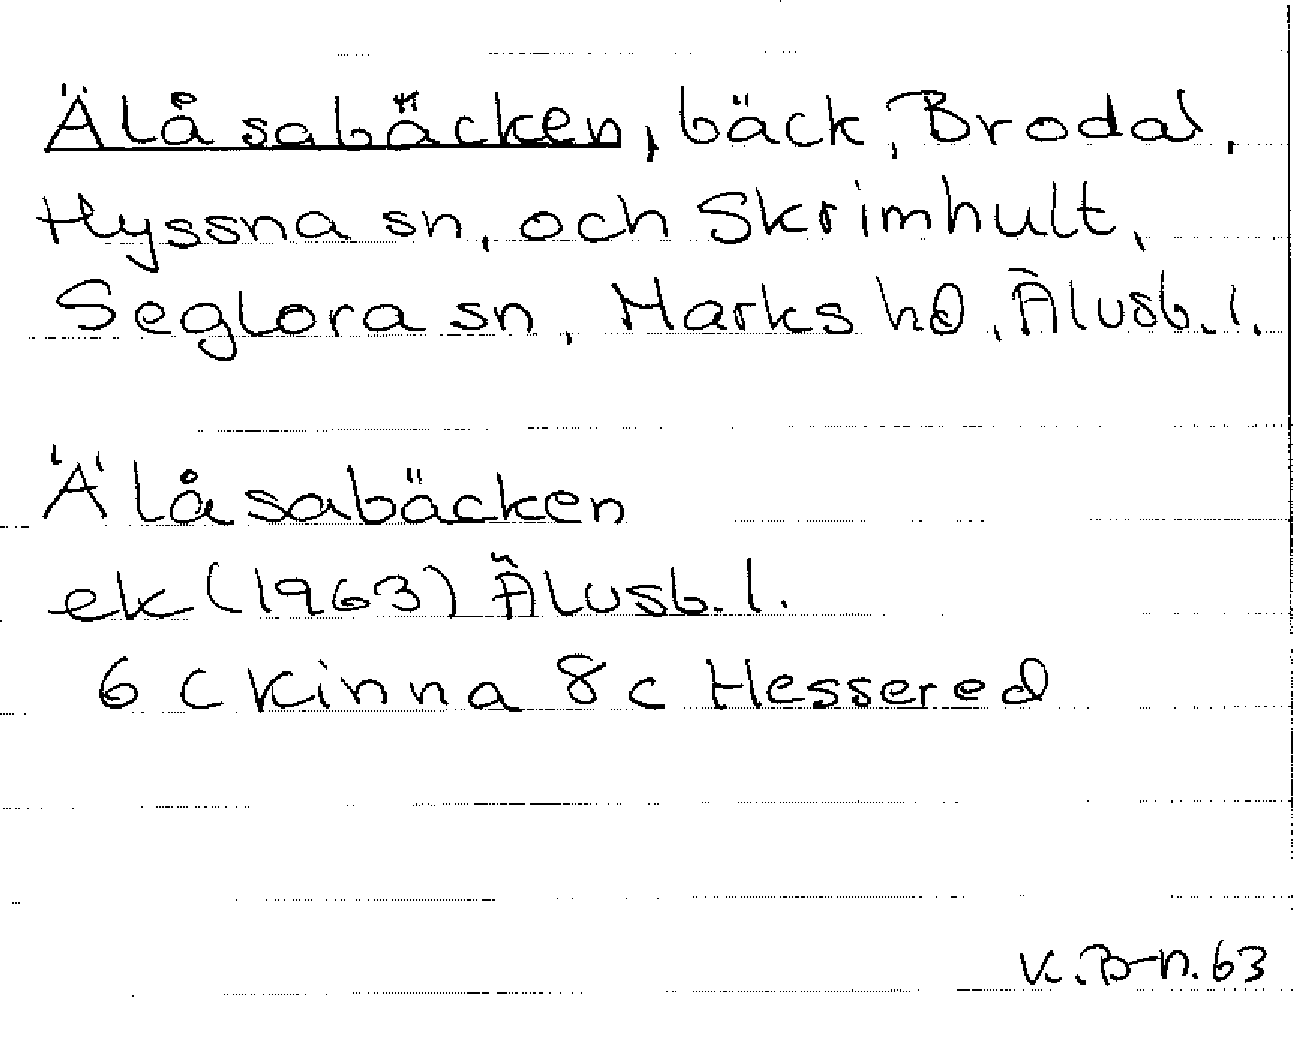 Älåsabäcken, bäck, Brodal,
Hyssna sn, och Skrimhult,
Seglora sn, Marks hd, Älvsb. l.
Älåsabäcken
ek (1963) Älvsb. l.
6 c Kinna 8 c Hessered
K. B-n. 63